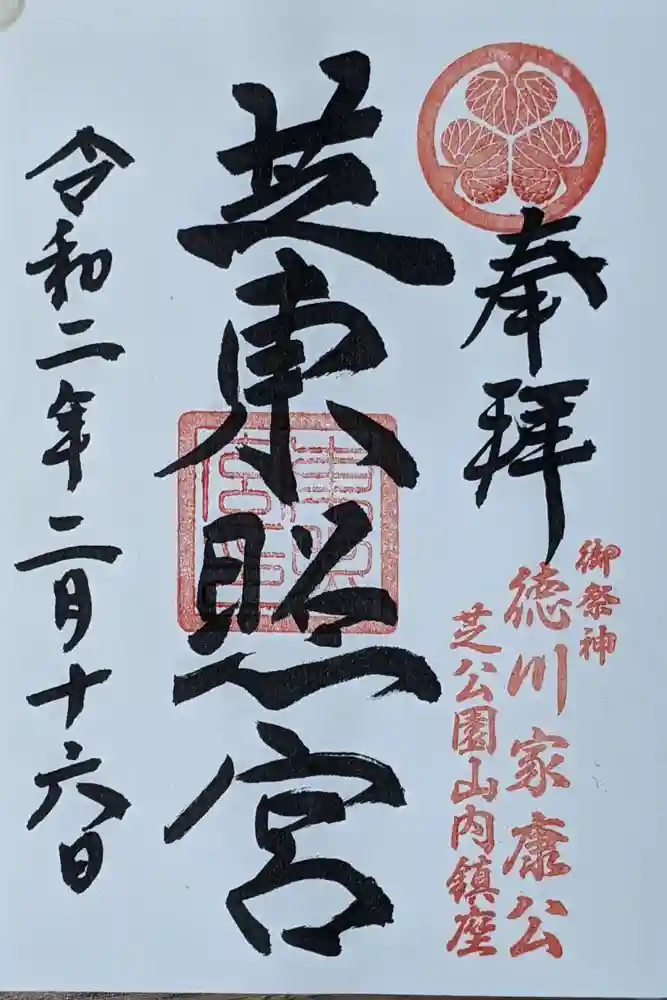 奉拝
御祭神
徳川家康公
芝公園山内鎮座
芝東照宮
令和二年二月十六日